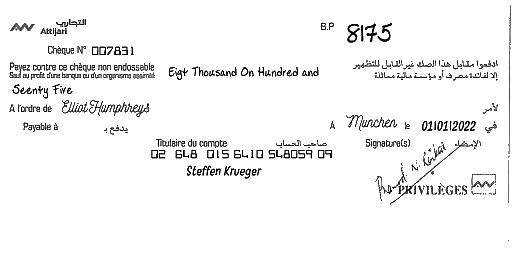 التجاري
Attijari
B.P 8175
Chèque N° 007831
Payez contre ce chèque non endossable
Sauf au profit d'une banque ou d'un organisme assimilé
Eigt Thousand On Hundred and
ادفعوا مقابل هذا الصك غير القابل للتظهير
إلا لفائدة مصرف أو مؤسسة مالية مماثلة
Seenty Five
A l'ordre de Elliot Humphreys
لأمر
Payable à
يدفع بـ
A Munchen le 01/01/2022 في
Titulaire du compte صاحب الحساب
Signature(s) الإمضاء
02 648 015 6410 548059 09
Steffen Krueger
PRIVILÈGES